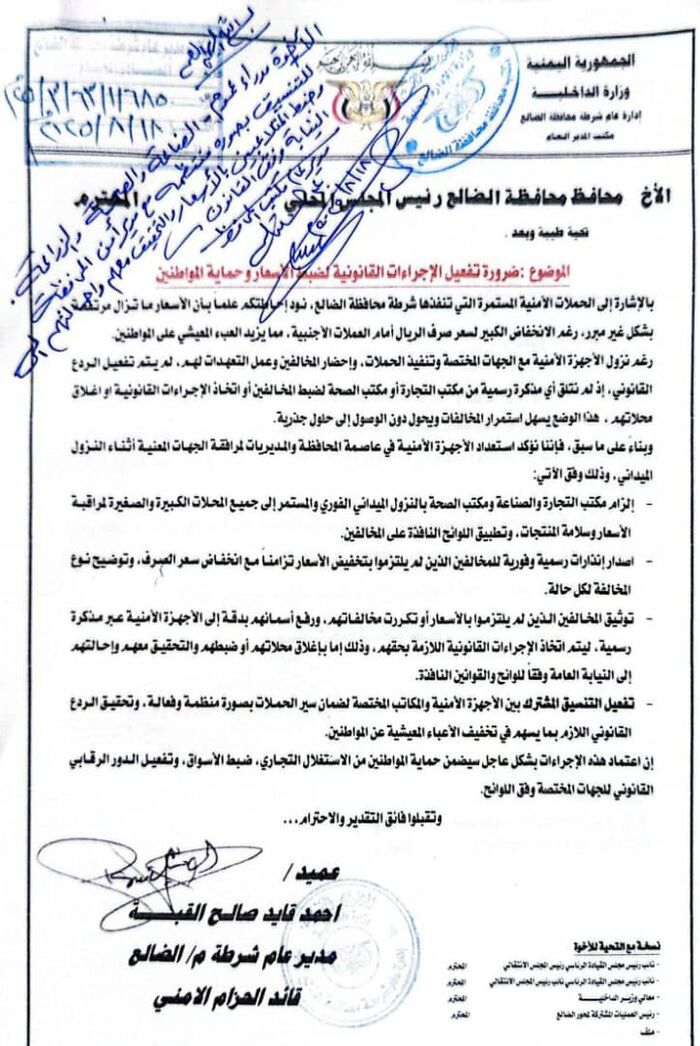 الجمهورية اليمنية
وزارة الداخلية
إدارة عام شرطة محافظة الضالع
مكتب المدير العام
٣/٦٣/١١٦٨٥
٢٠٢٥/٨/١٨
بسم الله الرحمن الرحيم
الأخ محافظ محافظة الضالع رئيس المجلس المحلي المحترم
تحية طيبة وبعد ,
الموضوع :ضرورة تفعيل الإجراءات القانونية لضبط الأسعار وحماية المواطنين
بالإشارة إلى الحملات الأمنية المستمرة التي تنفذها شرطة محافظة الضالع، نود إحاطتكم علماً بأن الأسعار ما تزال مرتفعة
بشكل غير مبرر، رغم الانخفاض الكبير لسعر صرف الريال أمام العملات الأجنبية، مما يزيد العبء المعيشي على المواطنين.
رغم نزول الأجهزة الأمنية مع الجهات المختصة وتنفيذ الحملات، وإحضار المخالفين وعمل التعهدات لهم، لم يتم تفعيل الردع
القانوني، إذ لم نتلق أي مذكرة رسمية من مكتب التجارة أو مكتب الصحة لضبط المخالفين أو اتخاذ الإجراءات القانونية او اغلاق
محلاتهم ، هذا الوضع يسهل استمرار المخالفات ويحول دون الوصول إلى حلول جذرية.
وبناءً على ما سبق، فإننا نؤكد استعداد الأجهزة الأمنية في عاصمة المحافظة والمديريات لمرافقة الجهات المعنية أثناء النزول
الميداني، وذلك وفق الآتي:
- إلزام مكتب التجارة والصناعة ومكتب الصحة بالنزول الميداني الفوري والمستمر إلى جميع المحلات الكبيرة والصغيرة لمراقبة
الأسعار وسلامة المنتجات، وتطبيق اللوائح النافذة على المخالفين.
- اصدار إنذارات رسمية وفورية للمخالفين الذين لم يلتزموا بتخفيض الأسعار تزامناً مع انخفاض سعر الصرف، وتوضيح نوع
المخالفة لكل حالة.
- توثيق المخالفين الذين لم يلتزموا بالأسعار أو تكررت مخالفاتهم، ورفع أسمائهم بدقة إلى الأجهزة الأمنية عبر مذكرة
رسمية، ليتم اتخاذ الإجراءات القانونية اللازمة بحقهم، وذلك إما بإغلاق محلاتهم أو ضبطهم والتحقيق معهم وإحالتهم
إلى النيابة العامة وفقاً للوائح والقوانين النافذة.
- تفعيل التنسيق المشترك بين الأجهزة الأمنية والمكاتب المختصة لضمان سير الحملات بصورة منظمة وفعالة، وتحقيق الردع
القانوني اللازم بما يسهم في تخفيف الأعباء المعيشية عن المواطنين.
إن اعتماد هذه الإجراءات بشكل عاجل سيضمن حماية المواطنين من الاستغلال التجاري، ضبط الأسواق، وتفعيل الدور الرقابي
القانوني للجهات المختصة وفق اللوائح.
وتقبلوا فائق التقدير والاحترام،،،
عميد /
احمد قايد صالح القبة
مدير عام شرطة م/ الضالع
قائد الحزام الامني
نسخة مع التحية للأخوة
- نائب رئيس مجلس القيادة الرئاسي رئيس المجلس الانتقالي المحترم
- نائب رئيس مجلس القيادة الرئاسي نائب رئيس المجلس الانتقالي المحترم
- معالي وزير الداخلية المحترم
- رئيس العمليات المشتركة لمحور الضالع المحترم
- ملف